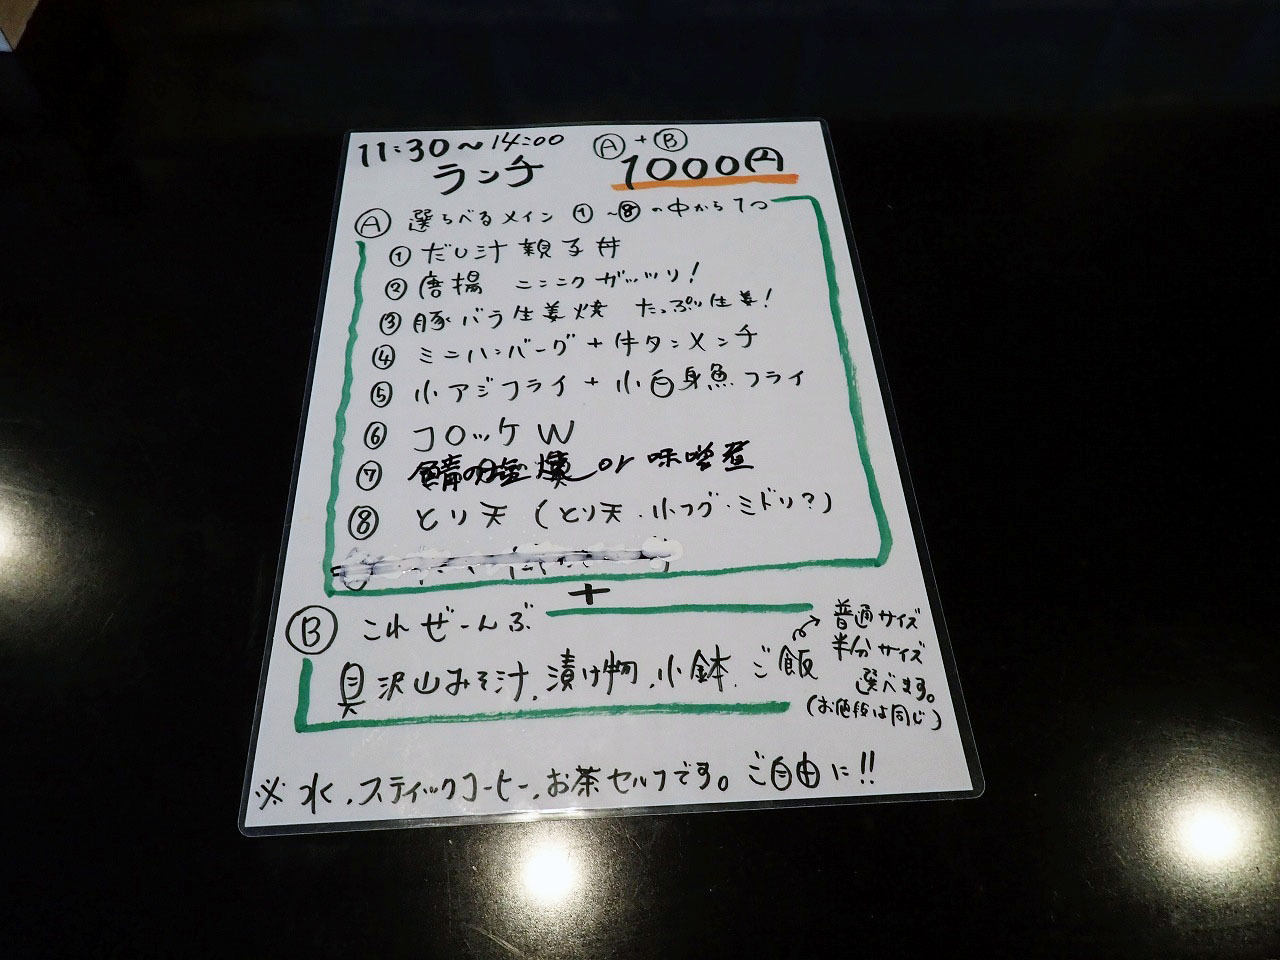 11:30〜14:00 Ⓐ+Ⓑ
ランチ 1000円
Ⓐ 選らべるメイン ①〜⑧の中から1つ
① だし汁親子丼
② 唐揚 ニンニクガッツリ!
③ 豚バラ生姜焼 たっぷり生姜!
④ ミニハンバーグ+牛タンメンチ
⑤ 小アジフライ+小白身魚フライ
⑥ コロッケW
⑦ 鯖の塩焼or味噌煮
⑧ とり天(とり天・小フグ・ミドリ?)
+
Ⓑ これぜーんぶ
具沢山みそ汁、漬け物、小鉢、ご飯
普通サイズ
半分サイズ
選べます。
(お値段は同じ)
※水、スティックコーヒー、お茶セルフです。ご自由に!!